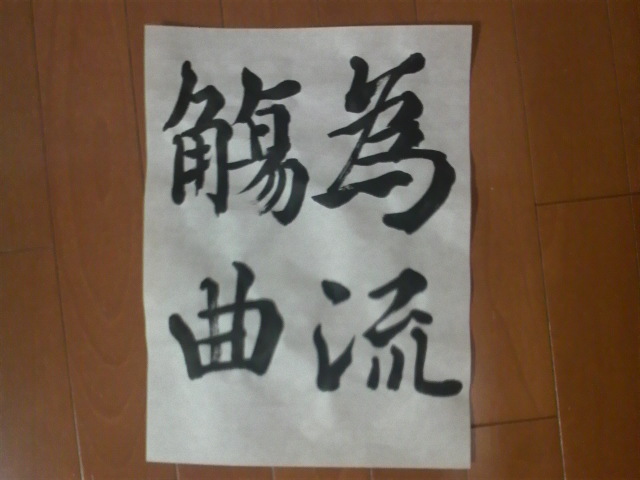 為流
觴曲